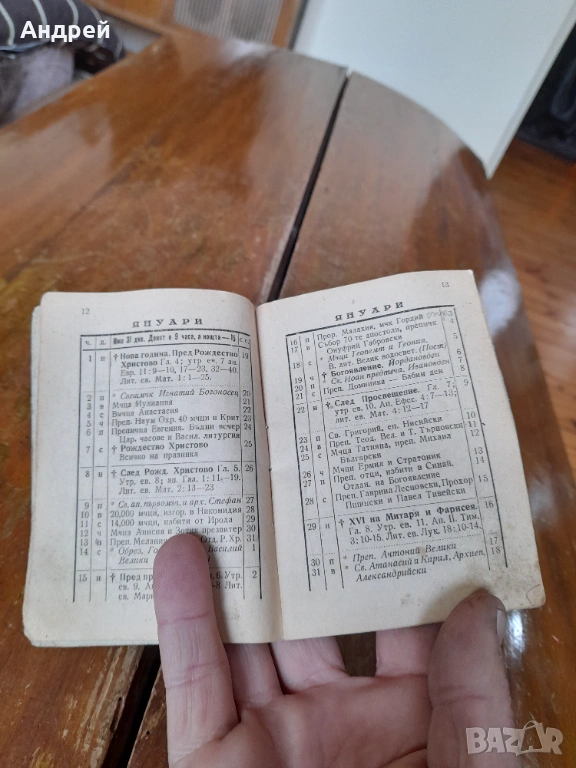 Андрей
12
ЯНУАРИ
ч. д. Има 31 дни. Денят е 9 часа, а нощта — 15 с. с.
1 н † Нова година. Пред Рождество 19
Христово Гл. 4; утр ев. 7. ап.
Евр. 11:9—10, 17—23, 32—40.
Лит. ев. Мат. 1:1—25.
2 п * Свещмчк Игнатий Богоносец 20
3 в Мчца Иулиания 21
4 с Мчца Анастасия 22
5 ч Преп. Наум Охр. 10 мчци и Крит 23
6 п Прпмчца Евгения. Бъдни вечер 24
Цар. часове и Васил. литургия
7 с † Рождество Христово 25
Всичко на празника
8 н † След Рожд. Христово Гл. 5. 26
Утр. ев. 8; вв. Гал. 1:11—19.
Лит. ев. Мат. 2:13—23
9 п * Св. ап. първомч. и арх. Стефан 27
10 в 20,000 мчци, изгор. в Никомидия 28
11 с 14,000 мчци, избити от Ирода 29
12 ч Мчца Анисия и Зотик презвитер 30
13 п Преп. Мелания Отд. Р. Хр. 31
14 с * Обрез. Го Василий 1
Велики
15 н † Пред пр 6 Утр 2
св. 9. Ап. —8 Лит.
ев. Марк
13
ЯНУАРИ
16 п Прор. Малахия, мчк Гордий 3
17 в Събор 70-те апостоли, препмчк 4
Онуфрий Габровски
18 с * Мчци Теопемт и Теона. 5
В. лит. Велик водосвет. (Пост)
19 ч † Богоявление. Йордановден 6
20 п * Св. Йоан предтеча. Ивановден 7
21 с Преп. Доминика — Бабин ден 8
22 н † След Просвещение. Гл. 7, 9
утр св. 10. Ап. Ефес. 4:7—13;
лит. ев. Мат. 4:12—17
23 п Св. Григорий, еп. Нисийски 10
24 в Преп. Теод. Вел. и Т. Търновска 11
25 с Мчца Татияна, преп. Михаил 12
Български
26 ч Мчци Ермил и Стратоник 13
27 п Преп. отци, избити в Синай. 14
Отдан. на Богоявление
28 с Преп. Гавриил Лесновски, Прохор 15
Пшински и Павел Тивейски
29 н † XVI на Митаря и Фарисея. 16
Гл. 8, Утр. ев. 11. Ап. II. Тим.
3:10-15. Лит. ев. Лук. 18:10-14.
30 п * Преп. Антоний Велики 17
31 в * Св. Атанасий и Кирил, Архиеп. 18
Александрийски
BAZAR